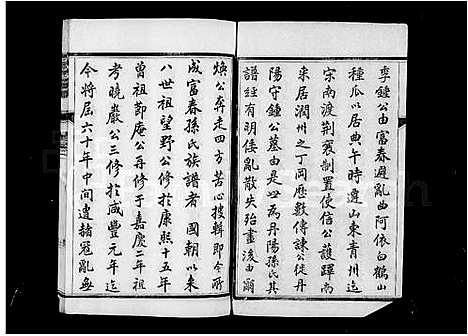 季鍾公由富春避亂曲阿依白鶴山
種瓜以居典午時遷山東青州迄
宋南渡荆襄制置使信公護蹕南
来居潤州之丁岡歷數傳諫公徙丹
陽守鍾公墓由是始有丹陽孫氏其
譜經有明倭亂散失殆盡浚由爾
煥公奔走四方苦心搜輯即今所
成富春孫氏族譜者 國朝以来
八世祖望野公修於康熙十五年
曾祖節庵公再修于嘉慶二年祖
考曉巖公三修於咸豐元年迄
今將屆六十年中間遭赭冠亂無